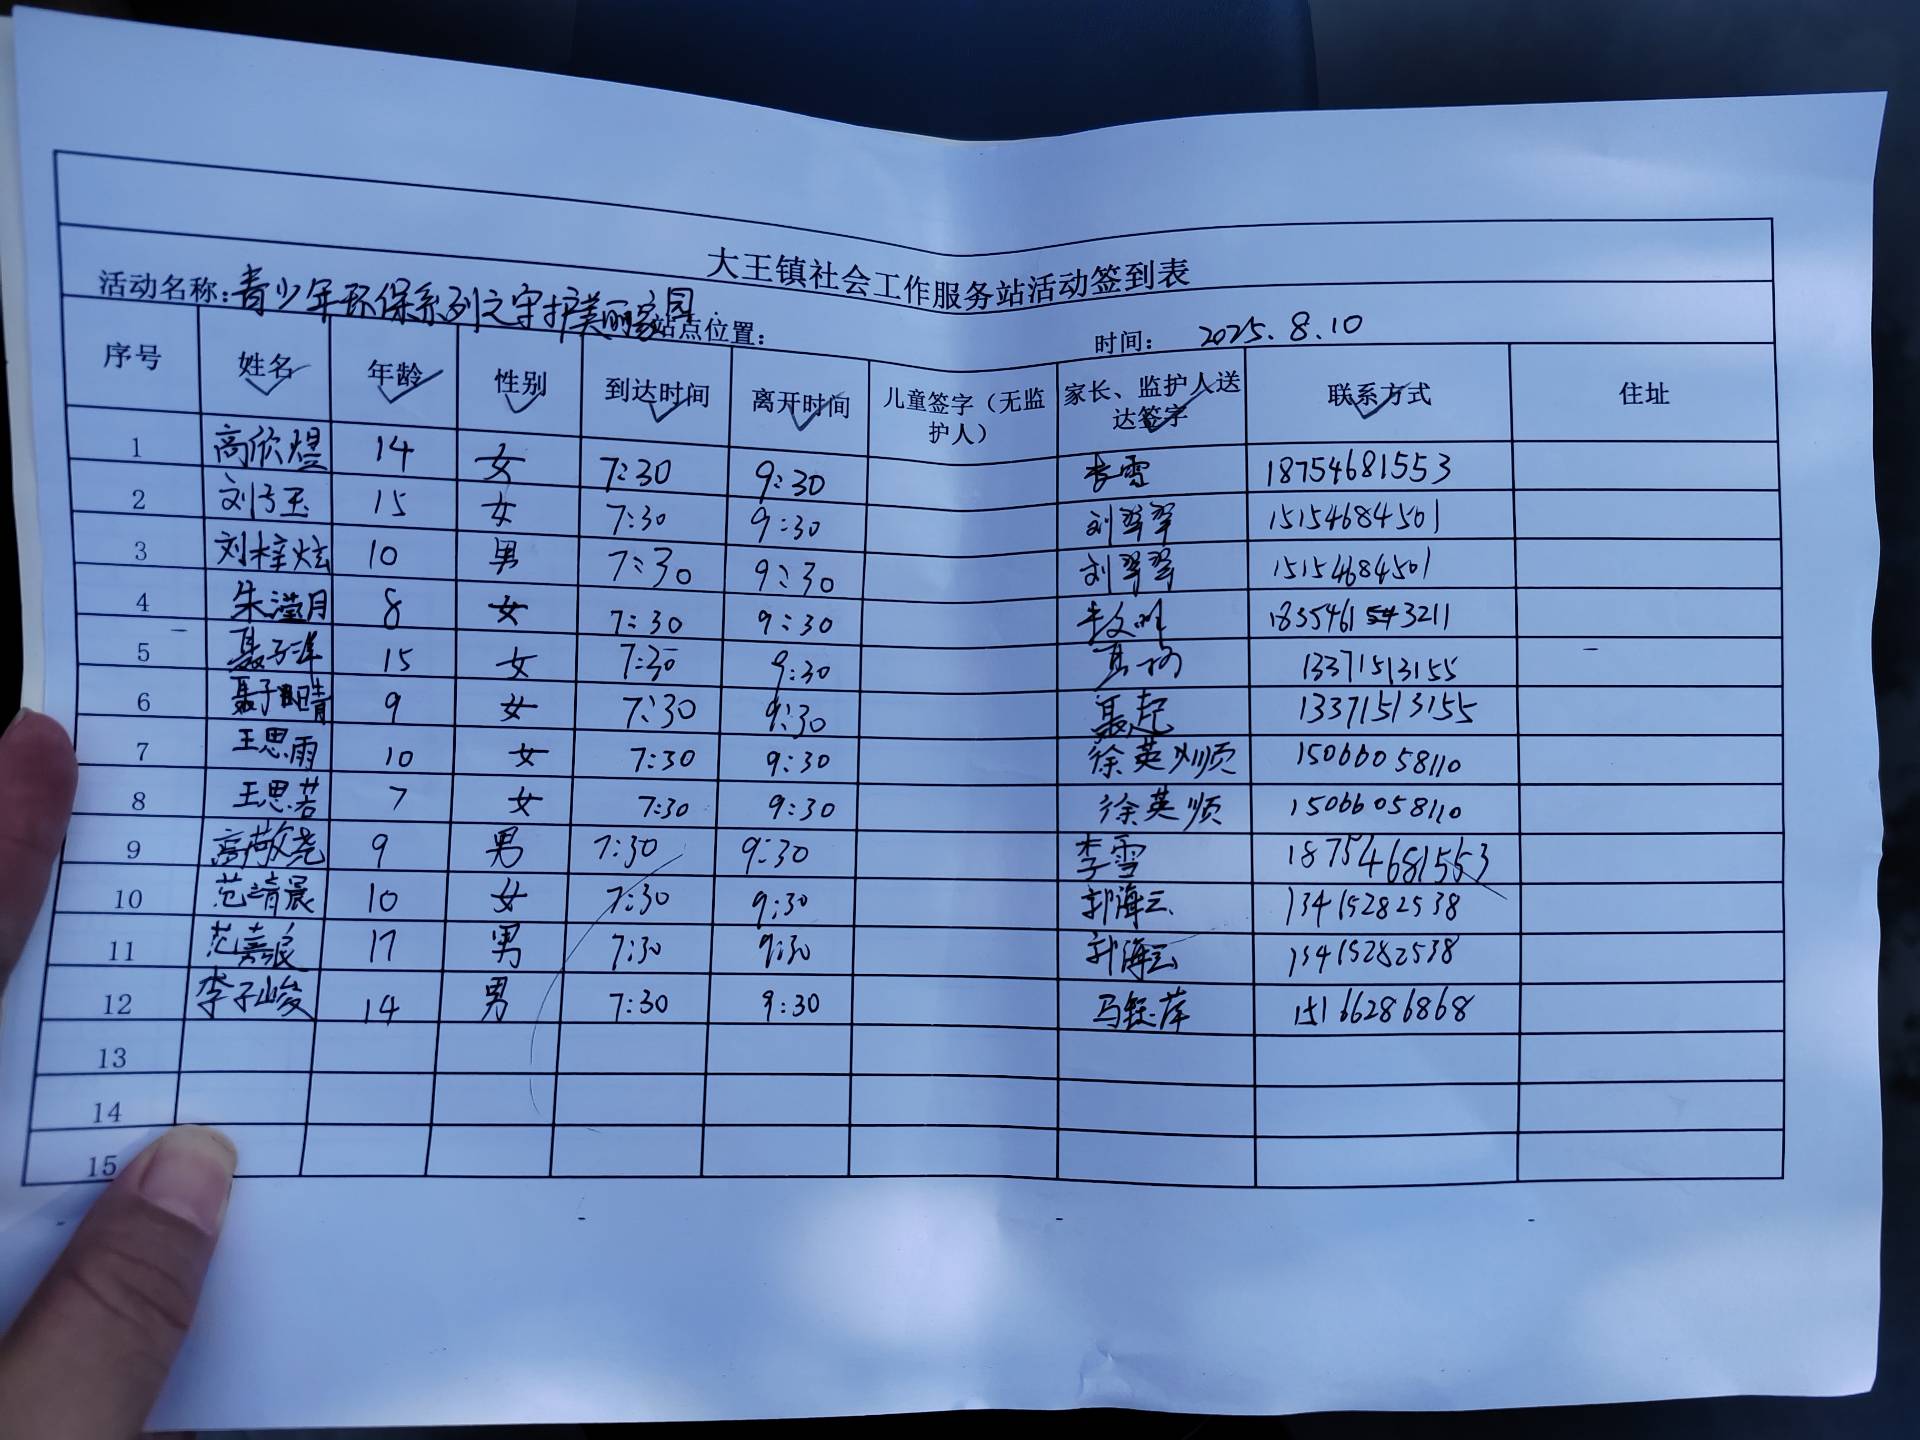 大王镇社会工作服务站活动签到表
活动名称:青少年环保系列之守护美丽家园. 站点位置: 时间: 2025.8.10
序号 姓名 年龄 性别 到达时间 离开时间 儿童签字（无监护人） 家长、监护人送达签字 联系方式 住址
1 高欣煜 14 女 7:30 9:30 李雪 18754681553
2 刘子玉 15 女 7:30 9:30 刘翠翠 15154684501
3 刘梓炫 10 男 7:30 9:30 刘翠翠 15154684501
4 朱滢月 8 女 7:30 9:30 18354613211
5 聂子洋 15 女 7:30 9:30 13371513155
6 聂子晴 9 女 7:30 9:30 聂起 13371513155
7 王思雨 10 女 7:30 9:30 徐英顺 15066058110
8 王思若 7 女 7:30 9:30 徐英顺 15066058110
9 高敬尧 9 男 7:30 9:30 李雪 18754681553
10 范清晨 10 女 7:30 9:30 郭海云 13415282538
11 范嘉良 17 男 7:30 9:30 郭海云 13415282538
12 李子峻 14 男 7:30 9:30 马钰萍 15166286868
13
14
15